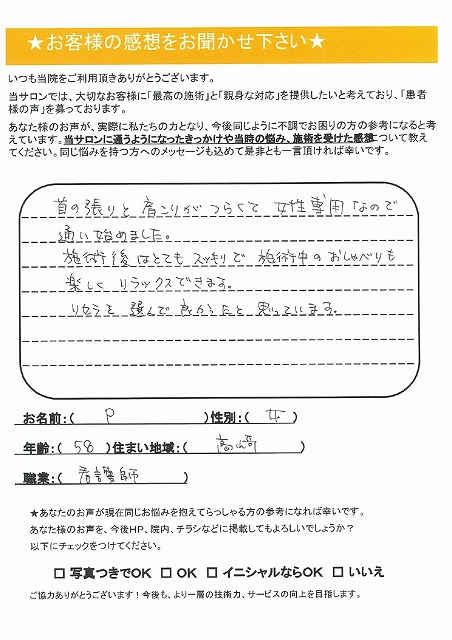 ★お客様の感想をお聞かせ下さい★
いつも当院をご利用頂きありがとうございます。
当サロンでは、大切なお客様に「最高の施術」と「親身な対応」を提供したいと考えており、「患者
様の声」を募っております。
あなた様のお声が、実際に私たちの力となり、今後同じように不調でお困りの方の参考になると考
えています。当サロンに通うようになったきっかけや当時の悩み、施術を受けた感想について教え
てください。同じ悩みを持つ方へのメッセージも込めて是非とも一言頂ければ幸いです。
首の張りと肩こりがつらくて女性専用なので
通い始めました。
施術後はとてもスッキリで施術中のおしゃべりも
楽しくリラックスできます。
リセラを選んで良かったと思っています。
お名前:( P )性別:( 女 )
年齢:( 58 )住まい地域:( 高崎 )
職業:( 看護師 )
★あなたのお声が現在同じお悩みを抱えてらっしゃる方の参考になれば幸いです。
あなた様のお声を、今後HP、院内、チラシなどに掲載してもよろしいでしょうか？
以下にチェックをつけてください。
□ 写真つきでOK □ OK □ イニシャルならOK □ いいえ
ご協力ありがとうございます！今後も、より一層の技術力、サービスの向上を目指します。